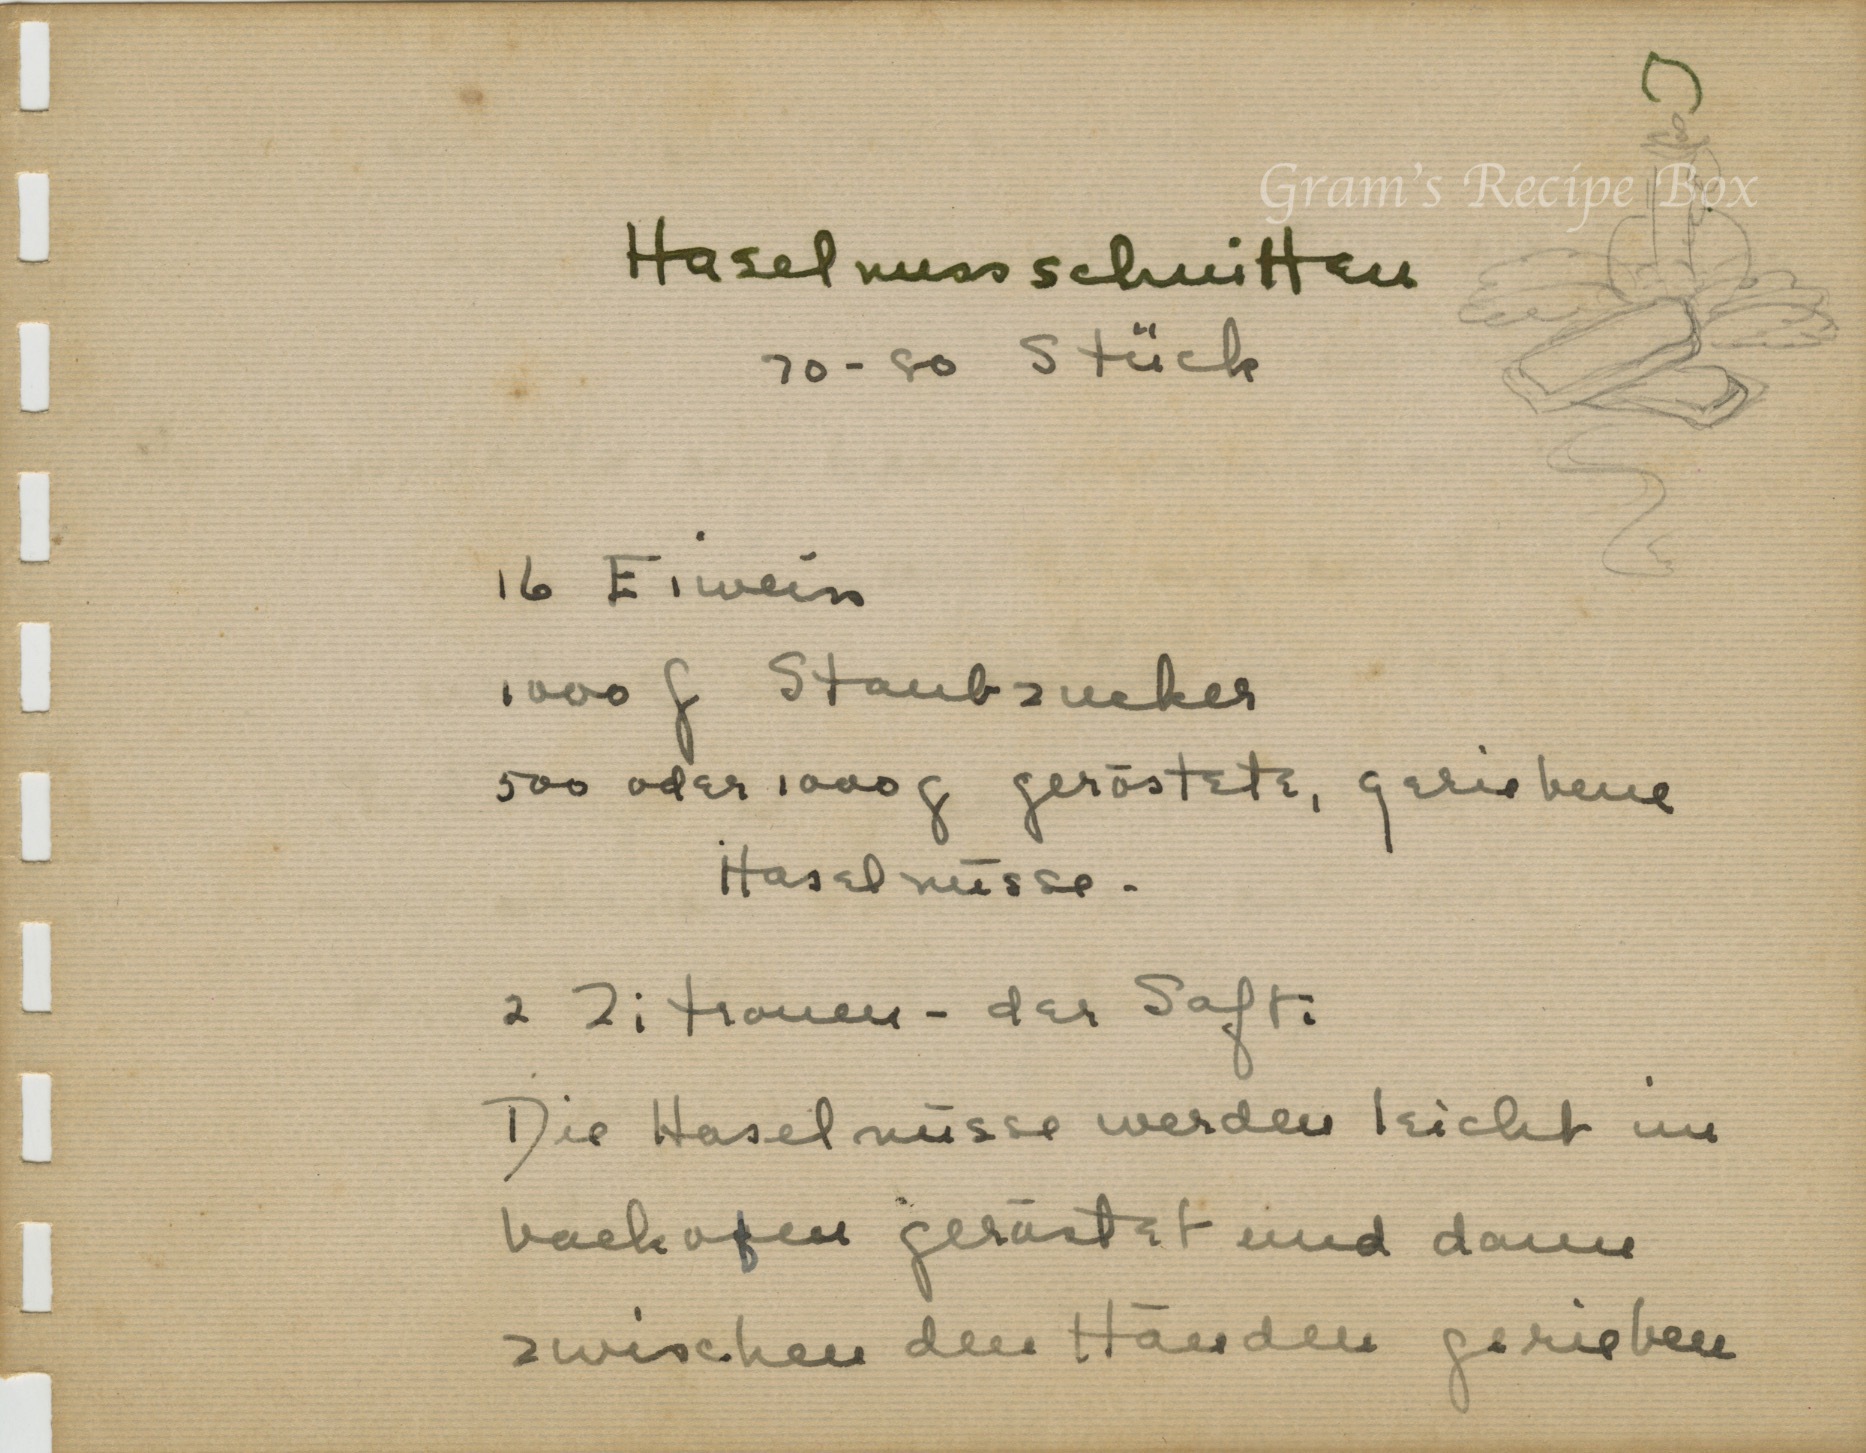 Gram's Recipe Box
Haselnussschnitten
70-80 Stück
16 Eiweiss
1000 g Staubzucker
500 oder 1000 g geröstete, geriebene
Haselnüsse.
2 Zitronen - der Saft.
Die Haselnüsse werden leicht im
backofen geröstet und dann
zwischen den Händen gerieben